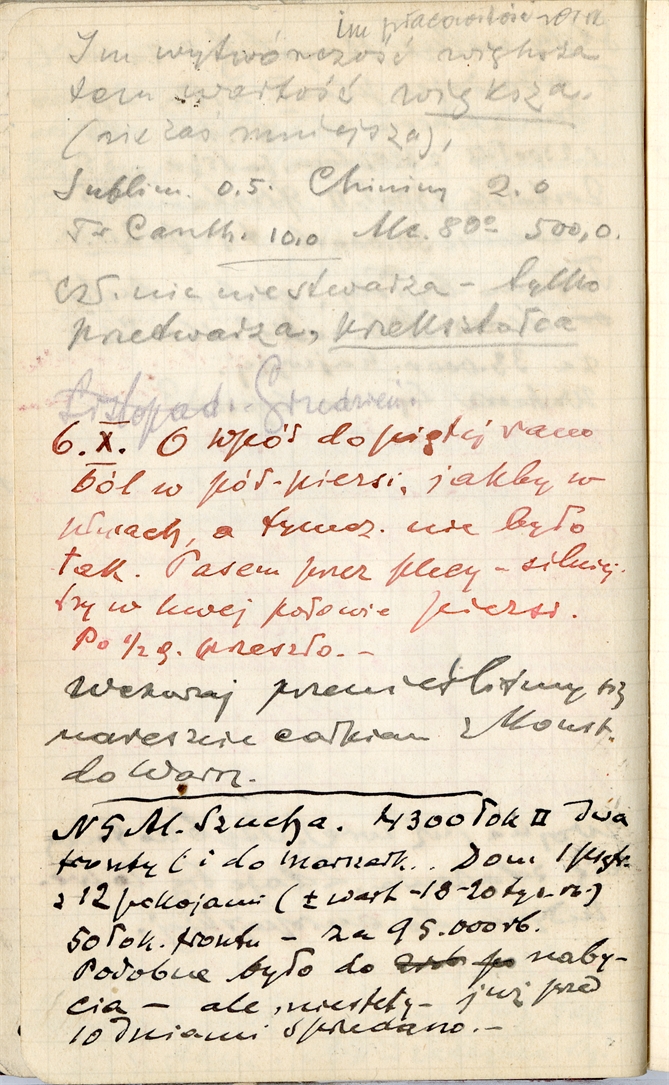 im pracowitość
Im wytwórczość większa
tem wartość większa.
(nie zaś mniejsza),
Sublim. 0.5. Chininy 2.0
Tr Canth. 10,0 Alc. 80° 500,0.
czł. nic nie stwarza – tylko
przetwarza, przekształca
Listopad. Grudzień.
6.X. O wpół do piątej rano
ból w pół-piersi, jakby w
płucach, a tymcz. nie było
tak. Pasem przez plecy – silniej-
szy w lewej połowie piersi.
Po 1/2 g. przeszło. –
Wczoraj przenieśliśmy się
nareszcie całkiem z Konst.
do Warsz.
N5 Al. Szucha. 4300 łok □ dwa
fronty (i do Marszałk.. Dom 1 piętr.
z 12 pokojami (± wart – 18-20 tys. rs)
50 łok. frontu – za 95.000 rb.
Podobne było do naby-
cia – ale, niestety – już przed
10 dniami sprzedano. –